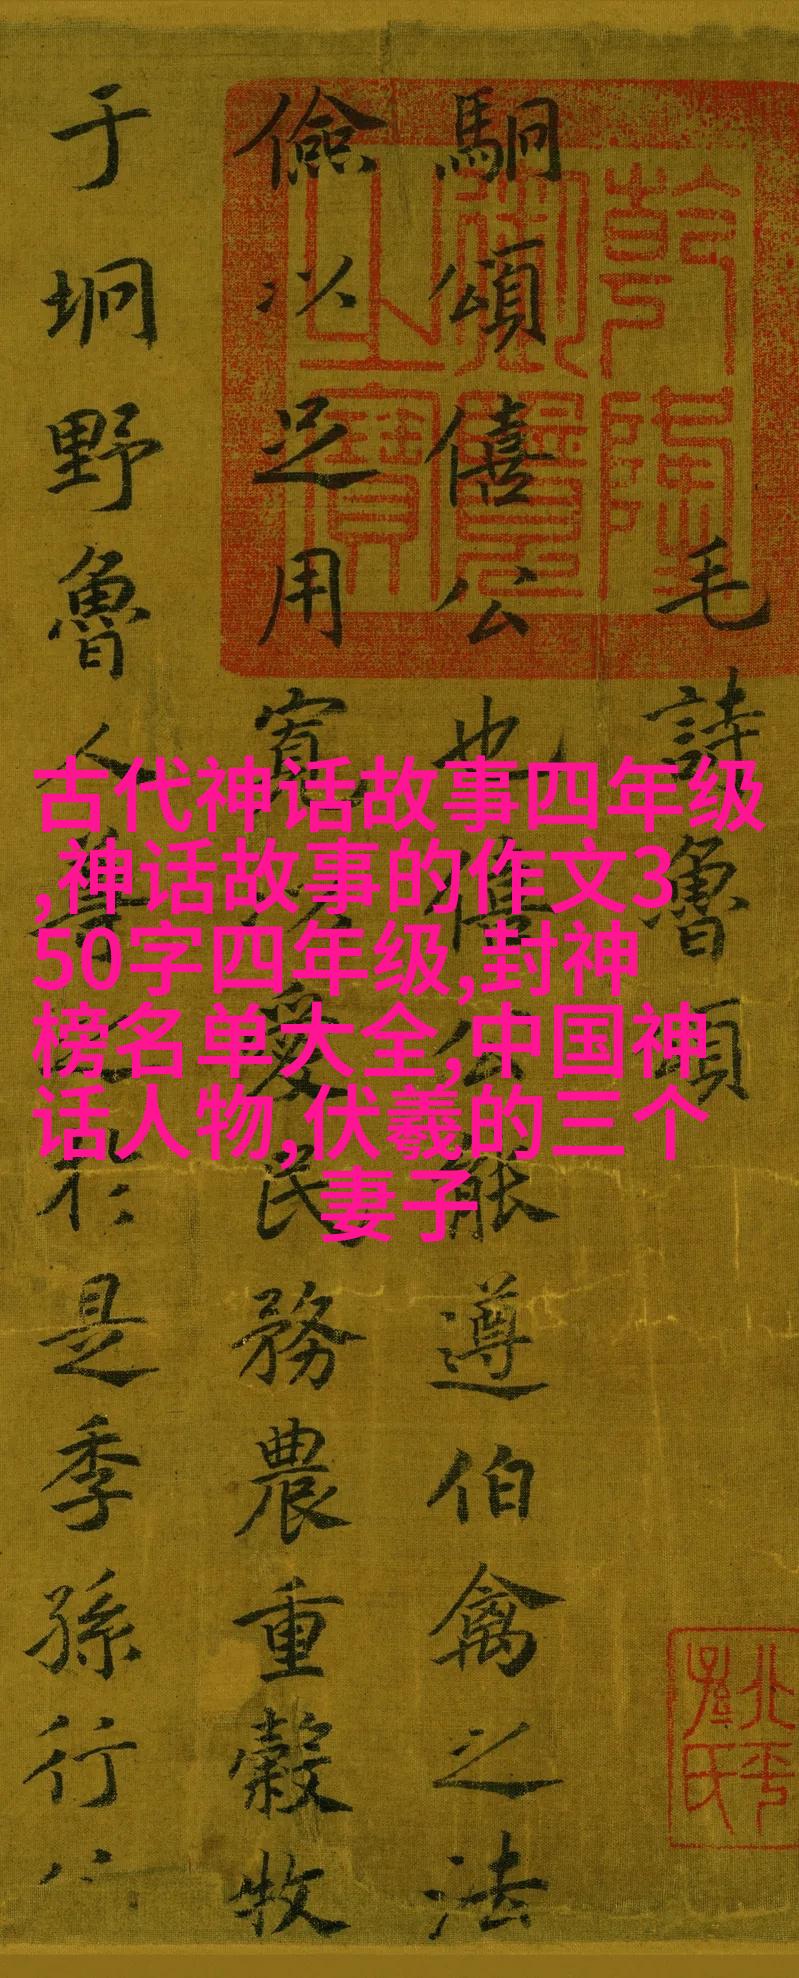 毛詩魯頌
駉頌僖公也僖公能遵伯禽之法
儉以足用寬以愛民務農重穀牧
于坰野魯人尊之於是季孫行
乾隆
御覽
之寶
北平
孫氏
古代神话故事四年级
,神话故事的作文3
50字四年级,封神
榜名单大全,中国神
话人物,伏羲的三个
妻子